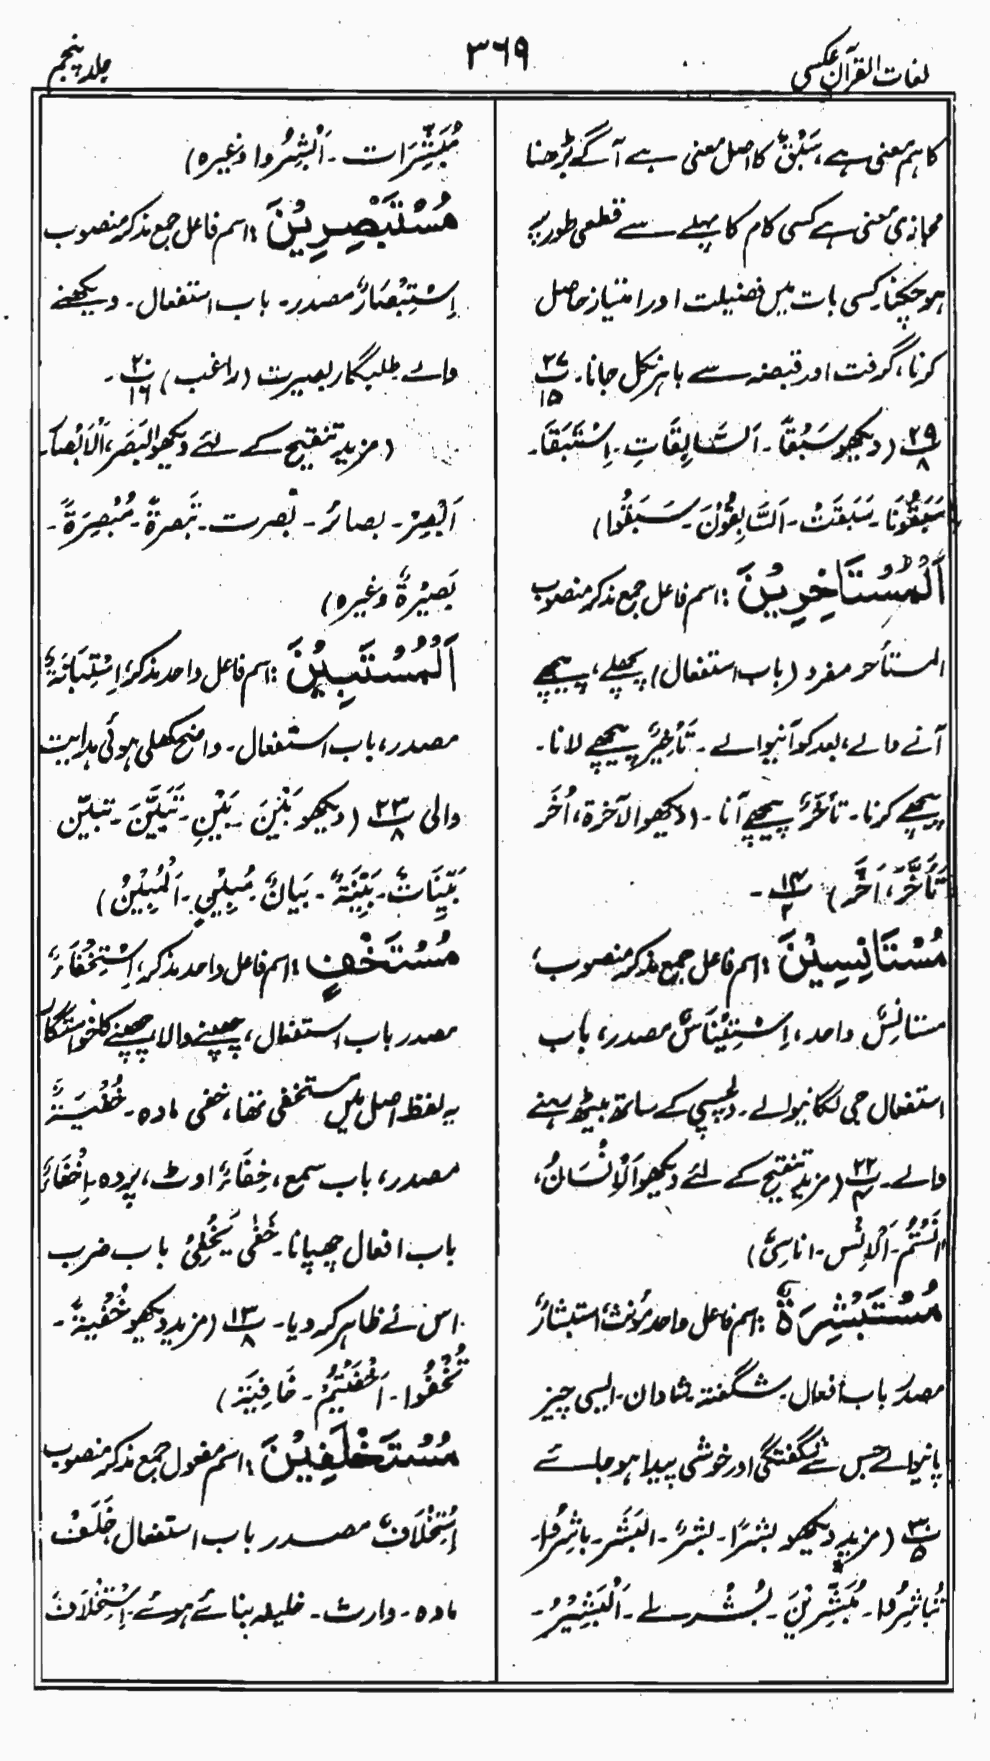 لغات القرآن عکسی
۳۶۹
جلد پنجم
کا ہم معنی ہے، سَبْقٌ کا اصل معنی ہے آگے بڑھنا
مجازی معنی ہے کسی کام کا پہلے سے قطعی طور پر
ہو چکنا۔ کسی بات میں فضیلت اور امتیاز حاصل
کرنا، گرفت اور قبضہ سے باہر نکل جانا۔ ۲۷/۱۵
۲۹/۸ (دیکھو سَبْقًا۔ اَلسَّابِقَاتِ۔ اِسْتَبَقَا۔
سَبَقُوْنَا۔ سَبَقَتْ۔ اَلسَّابِقُوْنَ۔ سَبَقُوْا)
اَلْمُسْتَاْخِرِیْنَ: اسم فاعل جمع مذکر منصوب
المستأخر مفرد (باب استفعال) پچھلے، پیچھے
آنے والے، بعد کو آنیوالے۔ تَأْخِیْرٌ پیچھے لانا۔
پیچھے کرنا۔ تَأَخُّرٌ پیچھے آنا۔ (دیکھو الآخرۃ، اُخَر
تَأَخَّرَ، اَخَّرَ) ۱۴/۲۔
مُسْتَاْنِسِیْنَ: اسم فاعل جمع مذکر منصوب،
مستانسٌ واحد، اِسْتِیْنَاسٌ مصدر، باب
استفعال جی لگانیوالے۔ دلچسپی کے ساتھ بیٹھ رہنے
والے۔ ۲۲/۴ (مزید تنقیح کے لئے دیکھو اَلْاِنْسَانُ،
اٰنَسْتُمْ۔ اَلْاِنْس۔ اناسیّ)
مُسْتَبْشِرَۃٌ: اسم فاعل واحد مؤنث، استبشارٌ
مصدر باب افعال۔ شگفتہ۔ شادان۔ ایسی چیز
پانیوالے جس سے شگفتگی اور خوشی پیدا ہو جائے
۳۰/۵ (مزید دیکھو بشرًا۔ بشرٌ۔ البَشَر۔ باشِرُوا۔
تُبَاشِرُوا۔ مُبَشِّرِیْنَ۔ بُشْرٰے۔ اَلْبَشِیْرُ۔
مُبَشِّرَات۔ اَبْشِرُوا وغیرہ)
مُسْتَبْصِرِیْنَ: اسم فاعل جمع مذکر منصوب
اِسْتِبْصَارٌ مصدر۔ باب استفعال۔ دیکھنے
والے طلبگار بصیرت (راغب) ۲۰/۱۶۔
(مزید تنقیح کے لئے دیکھو اَلْبَصَر، اَلْاَبْصَار۔
اَبْصِرْ۔ بصائر۔ بَصُرت۔ تَبْصِرَۃً۔ مُبْصِرَۃً۔
بَصِیْرَۃٌ وغیرہ)
اَلْمُسْتَبِیْنَ: اسم فاعل واحد مذکر، اِسْتِبَانَۃٌ
مصدر، باب استفعال۔ واضح کھلی ہوئی ہدایت
والی ۲۳/۸ (دیکھو بَیْنَ۔ بَیْنِ۔ تَبَیَّنَ۔ تبیّن
بَیِّنَاتٌ۔ بَیِّنَۃٌ۔ بَیَانٌ۔ مُبِیْنٍ۔ اَلْمُبِیْنُ)
مُسْتَخْفٍ: اسم فاعل واحد مذکر، اِسْتِخْفَاءٌ
مصدر باب استفعال، چھپنے والا، چھپنے کا خواستگار
یہ لفظ اصل میں مستخفی تھا، خفی مادہ۔ خُفْیَۃٌ
مصدر، باب سمع، خِفَاءٌ اوٹ، پردہ۔ اِخْفَاءٌ
باب افعال چھپانا۔ خَفٰی یَخْفِیْ باب ضرب
اس نے ظاہر کر دیا۔ ۱۳/۸ (مزید دیکھو خُفْیَۃً۔
تُخْفُوا۔ اَخْفَیْتُمْ۔ خَافِیَۃ)
مُسْتَخْلَفِیْنَ: اسم مفعول جمع مذکر منصوب
اِسْتِخْلَافٌ مصدر باب استفعال خَلَفْ
مادہ۔ وارث۔ خلیفہ بنائے ہوئے۔ اِسْتِخْلَافٌ